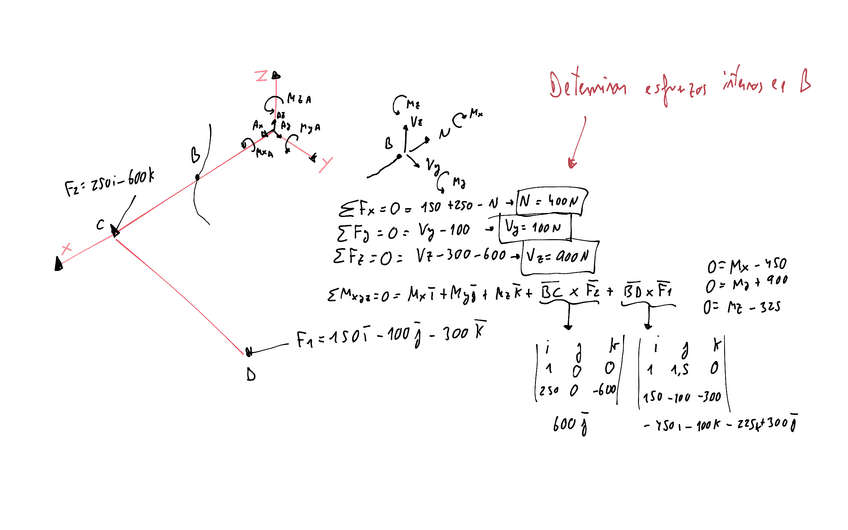 Determinar esfuerzos internos en B
Z
MzA
Az
Ax Ay MyA
MxA
Y
B
F2 = 250i - 600k
C
X
Mz
Vz
Mx
N
B
Vy
My
ΣFx = 0 = 150 + 250 - N → N = 400N
ΣFy = 0 = Vy - 100 → Vy = 100N
ΣFz = 0 = Vz - 300 - 600 → Vz = 900N
ΣMxyz = 0 = Mx i̅ + My j̅ + Mz k̅ + B̅C̅ x F̅2 + B̅D̅ x F̅1
0 = Mx - 450
0 = My + 900
0 = Mz - 325
F1 = 150 i̅ - 100 j̅ - 300 k̅
D
i j k
1 0 0
250 0 -600
600 j̅
i j k
1 1,5 0
150 -100 -300
- 450i - 100k - 225k + 300 j̅